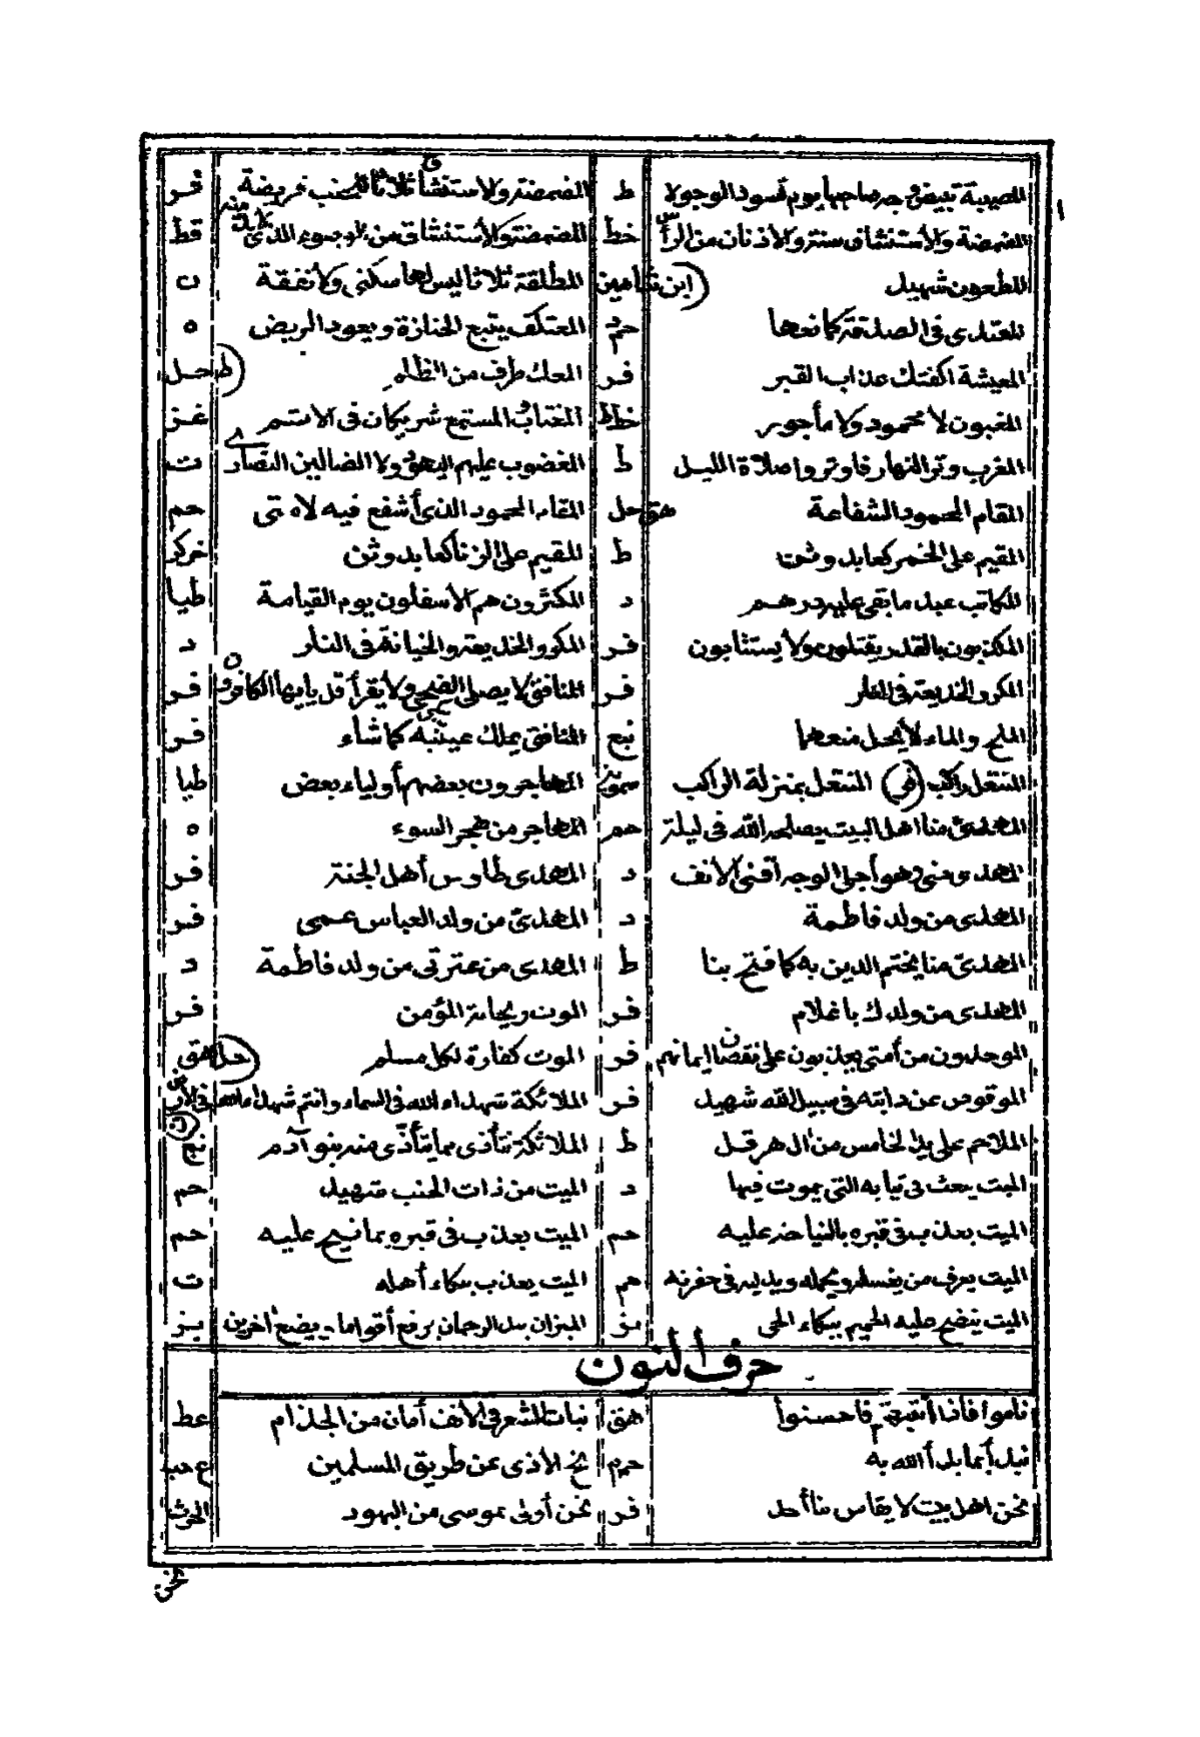 المصيبة تبيض وجه صاحبها يوم تسود الوجوه ط المضمضة والاستنشاق ثلاثا للجنب فريضة فر
المضمضة والاستنشاق سنة والاذنان من الرأس خط المضمضة والاستنشاق من الوضوء الذي لابد منه قط
المطعون شهيد (ابن شاهين المطلقة ثلاثا ليس لها سكنى ولا نفقة ن
المعتدى فى الصدقة كمانعها حم د المعتكف يتبع الجنازة ويعود المريض ه
المعيشة الضنك عذاب القبر فر المعك طرف من الظلم (ط حل
المغبون لا محمود ولا مأجور خط ط المغتاب والمستمع شريكان فى الاثم غز
المغرب وتر النهار فاوتروا صلاة الليل ط المغضوب عليهم اليهود ولا الضالين النصارى ت
المقام المحمود الشفاعة هق حل المقام المحمود الذى أشفع فيه لامتى حم
المقيم على الخمر كعابد وثن ط المقيم على الزنا كعابد وثن خر كر
المكاتب عبد ما بقى عليه درهم د المكثرون هم الاسفلون يوم القيامة طيا
المكذبون بالقدر يقتلون ولا يستتابون فر المكر والخديعة والخيانة فى النار د
المكر والخديعة فى النار فر المنافق لا يصلى الضحى ولا يقرأ قل يايها الكافرون فر
الملح والماء لا يحل منعهما نبع المنافق يملك عينيه كما شاء فر
المنتعل راكب (هى) المنتعل بمنزلة الراكب سمويه المهاجرون بعضهم أولياء بعض طيا
المهدى منا اهل البيت يصلحه الله فى ليلة حم المهاجر من هجر السوء ه
المهدى منى وهو أجلى الوجه أقنى الانف د المهدى طاوس أهل الجنة فر
المهدى من ولد فاطمة د المهدى من ولد العباس عمى فر
المهدى منا يختم الدين به كما فتح بنا ط المهدى من عترتى من ولد فاطمة د
المهدى من ولدك يا غلام فر الموت ريحانة المؤمن فر
الموحدون من أمتى يعذبون على نقصان ايمانهم فر الموت كفارة لكل مسلم (حل هق
الموقوص عن دابته فى سبيل الله شهيد فر الملائكة شهداء الله فى السماء وانتم شهداء الله فى الارض ن
الملاحم على يد الخامس من ال هرقل ط الملائكة تتأذى مما يتأذى منه بنو آدم نبع
الميت يبعث فى ثيابه التى يموت فيها د الميت من ذات الجنب شهيد حم
الميت يعذب فى قبره بالنياحة عليه حم الميت يعذب فى قبره بما نيح عليه حم
الميت يعرف من يغسله ويحمله ويدليه فى حفرته حم الميت يعذب ببكاء أهله ت
الميت ينضح عليه الحميم ببكاء الحى بز الميزان بيد الرحمان يرفع أقواما ويضع أخرين بز
حرف النون
ناموا فاذا أنتبهتم فاحسنوا هق نبات الشعر فى الانف أمان من الجذام عط
نبدأ بما بدأ الله به حم م نح الاذى عن طريق المسلمين ع حب
نحن اهل بيت لا يقاس بنا أحد فر نحن أولى بموسى من اليهود الحرث
نحن